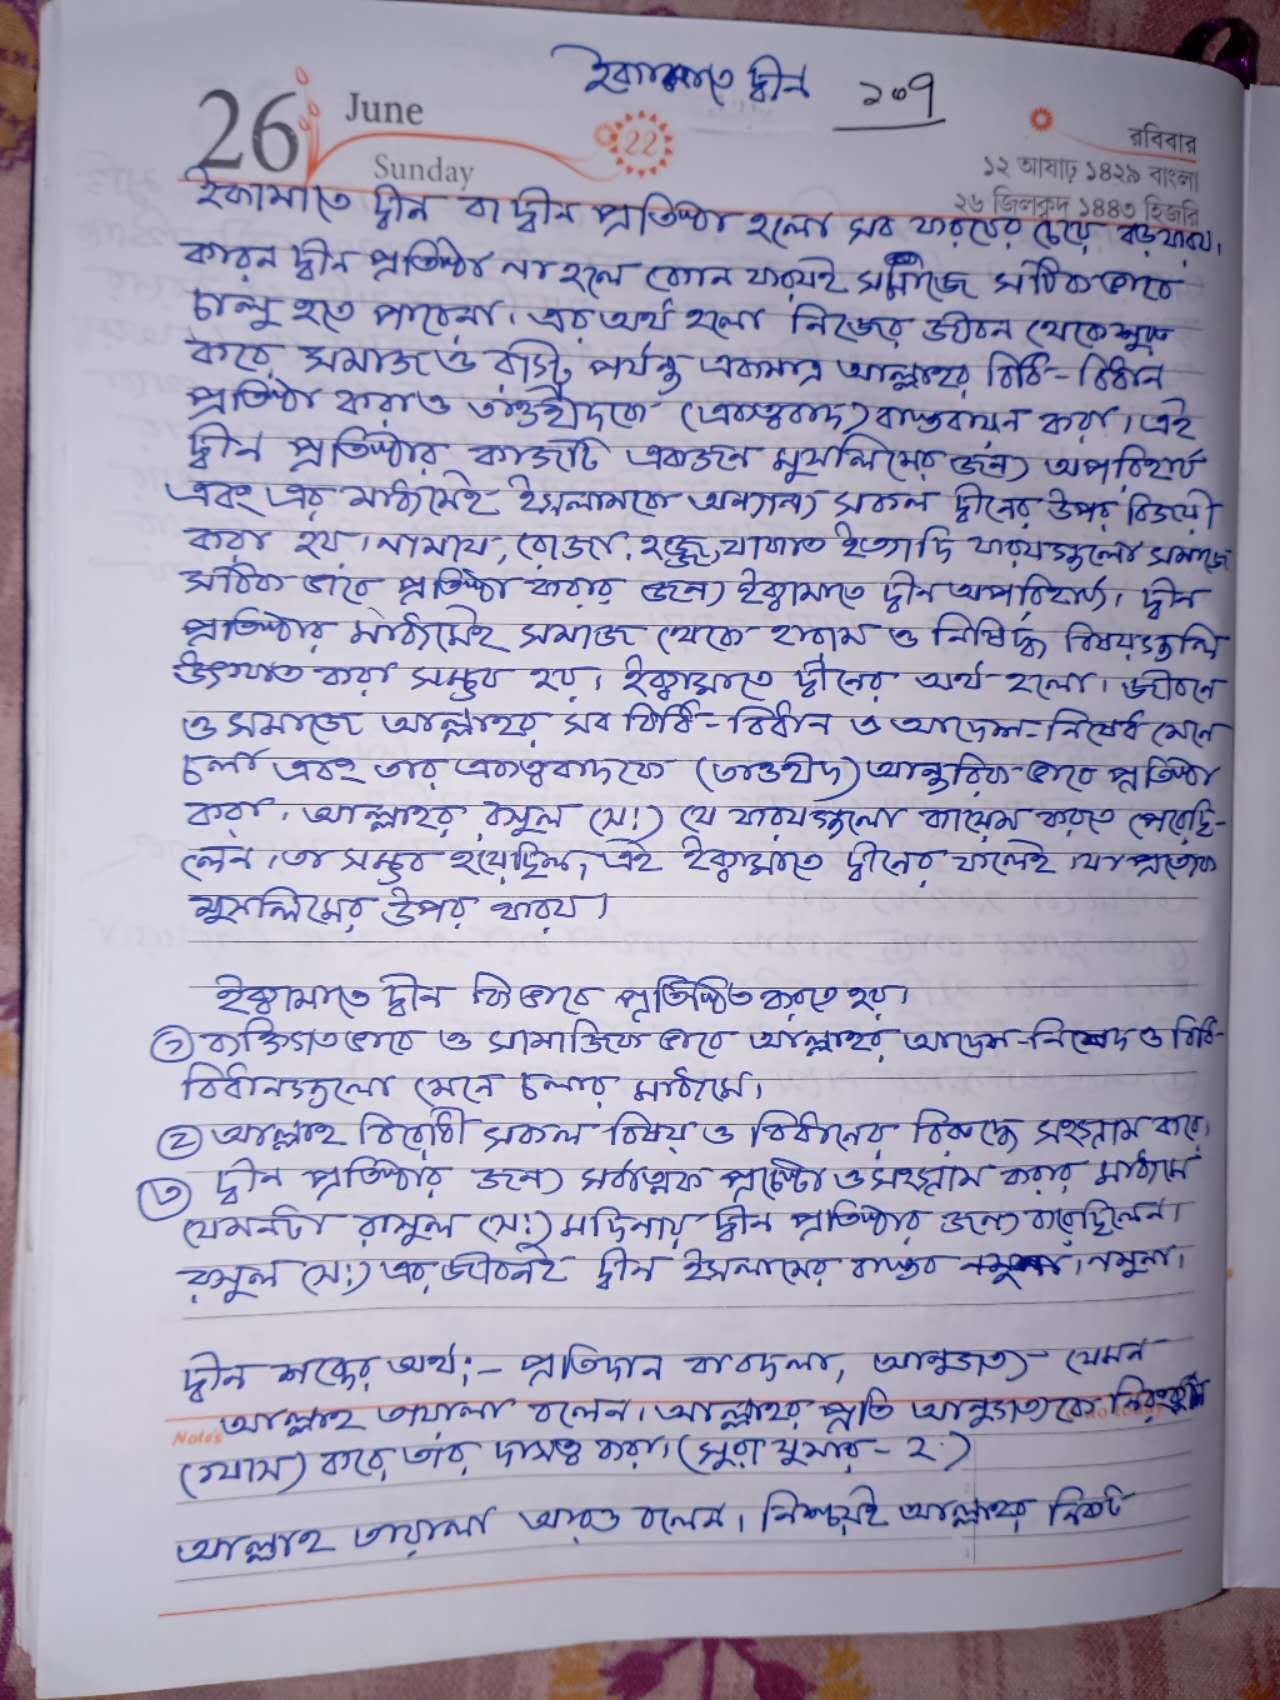 ইকামাতে দ্বীন ২৩৭
26 June
Sunday
22
রবিবার
১২ আষাঢ় ১৪২৯ বাংলা
২৬ জিলকদ ১৪৪৩ হিজরি
ইকামাতে দ্বীন বা দ্বীন প্রতিষ্ঠা হলো সব ফরযের চেয়ে বড় ফরয।
কারন দ্বীন প্রতিষ্ঠা না হলে কোন ফরযই সমাজে সঠিক ভাবে
চালু হতে পারেনা। এর অর্থ হলো নিজের জীবন থেকে শুরু
করে সমাজ ও রাস্ট্র পর্যন্ত একমাত্র আল্লাহর বিধি-বিধান
প্রতিষ্ঠা করা ও তাওহীদকে (একত্ববাদ) বাস্তবায়ন করা। এই
দ্বীন প্রতিষ্ঠার কাজটি একজন মুসলিমের জন্য অপরিহার্য
এবং এর মাধ্যমেই ইসলামকে অন্যান্য সকল দ্বীনের উপর বিজয়ী
করা হয়। নামায, রোজা, হজ্জ, যাকাত ইত্যাদি ফরযগুলো সমাজে
সঠিক ভাবে প্রতিষ্ঠা করার জন্য ইক্বামাতে দ্বীন অপরিহার্য। দ্বীন
প্রতিষ্ঠার মাধ্যমেই সমাজ থেকে হারাম ও নিষিদ্ধ বিষয়গুলি
উৎখাত করা সম্ভব হয়। ইক্বামাতে দ্বীনের অর্থ হলো। জীবনে
ও সমাজে আল্লাহর সব বিধি-বিধান ও আদেশ-নিষেধ মেনে
চলা এবং তার একত্ববাদকে (তাওহীদ) আন্তরিক ভাবে প্রতিষ্ঠা
করা। আল্লাহর রসুল (স:) যে ফরযগুলো কায়েম করতে পেরেছি-
লেন। তা সম্ভব হয়েছিল, এই ইক্বামাতে দ্বীনের ফলেই। যা প্রত্যেক
মুসলিমের উপর ফরয।
ইক্বামাতে দ্বীন কিভাবে প্রতিষ্ঠিত করতে হয়।
১ ব্যক্তিগতভাবে ও সামাজিক ভাবে আল্লাহর আদেশ-নিষেদ ও বিধি-
বিধানগুলো মেনে চলার মাধ্যমে।
২ আল্লাহ বিরোধী সকল বিষয় ও বিধানের বিরুদ্ধে সংগ্রাম করে।
৩ দ্বীন প্রতিষ্ঠার জন্য সর্বাত্নক প্রচেষ্টা ও সংগ্রাম করার মাধ্যমে
যেমনটা রাসুল (স:) মদিনায় দ্বীন প্রতিষ্ঠার জন্য করেছিলেন।
রসুল (স:) এর জীবনই দ্বীন ইসলামের বাস্তব নমুনা। নমুনা।
দ্বীন শব্দের অর্থ:- প্রতিদান বা বদলা, আনুগত্য- যেমন
Notes আল্লাহ তায়ালা বলেন। আল্লাহর প্রতি আনুগত্যকে
(খাস) করে তার দাসত্ব করা। (সুরা যুমার-২)
আল্লাহ তায়ালা আরও বলেন। নিশ্চয়ই আল্লাহর নিকট